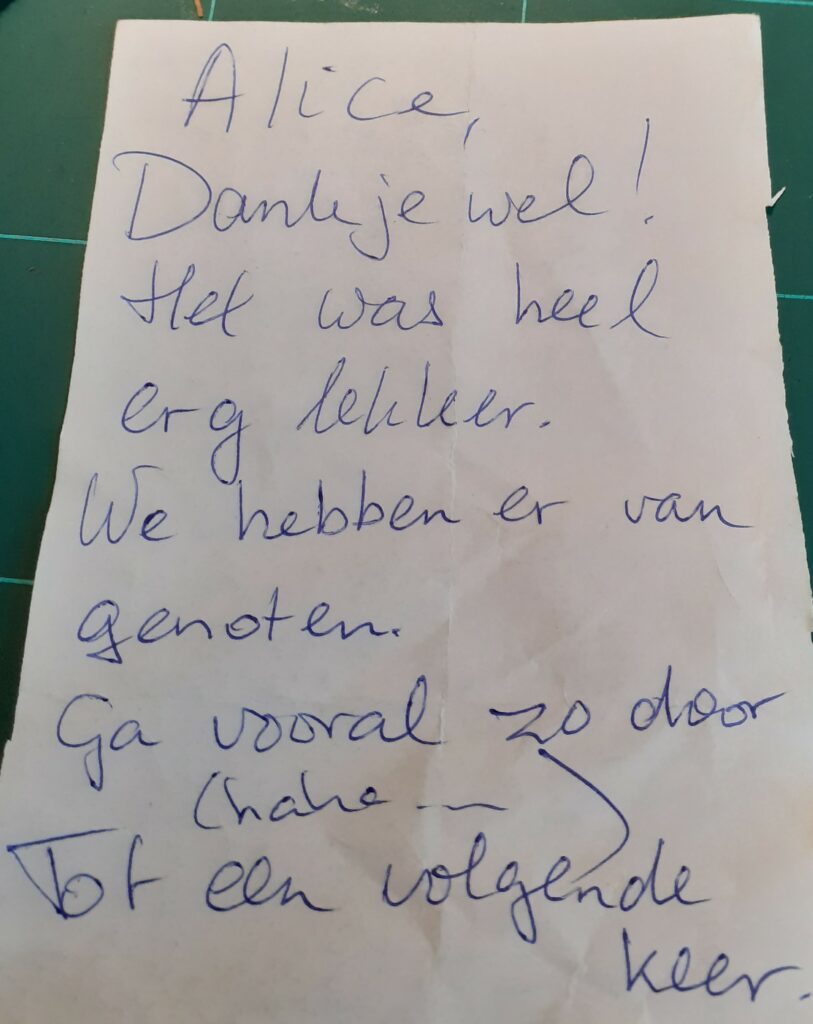 Alice,
Dankje wel!
Het was heel
erg lekker.
We hebben er van
genoten.
Ga vooral zo door
(haha —
Tot een volgende
keer.